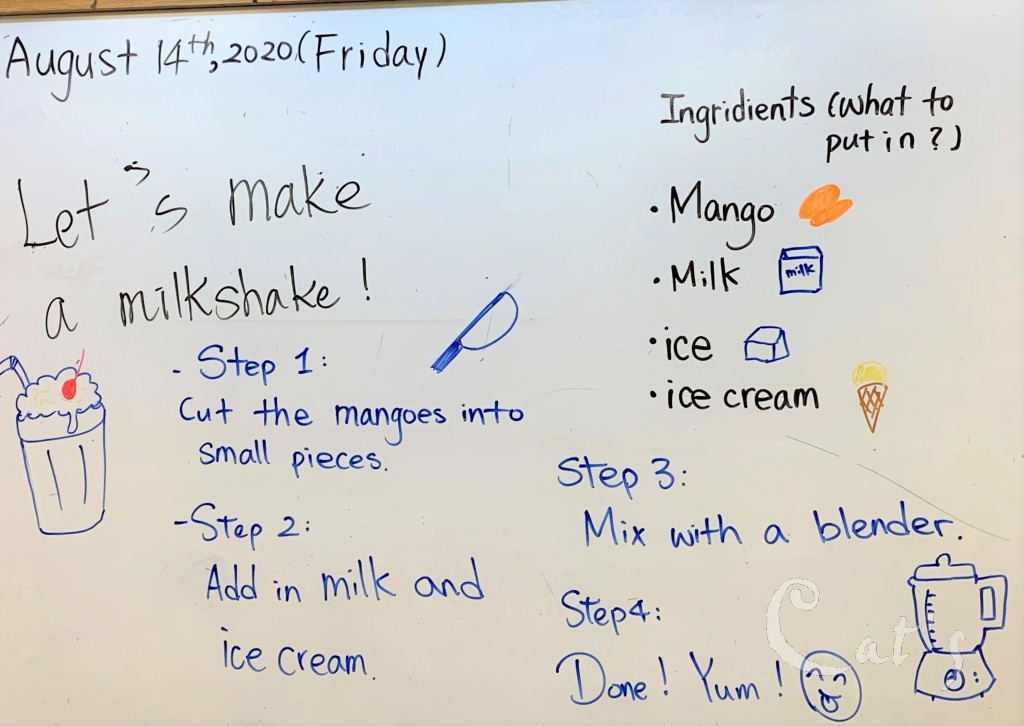 August 14th, 2020 (Friday)
Let's make
a milkshake!
- Step 1:
Cut the mangoes into
small pieces.
- Step 2:
Add in milk and
ice cream.
Ingridients (what to
put in?)
• Mango
• Milk
milk
• ice
• ice cream
Step 3:
Mix with a blender.
Step4:
Done! Yum!
Cat's